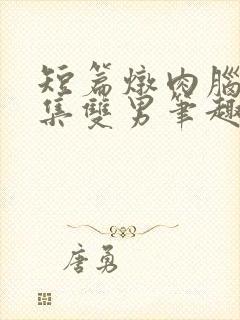 短篇燉肉腦
集雙男筆趣
唐勇